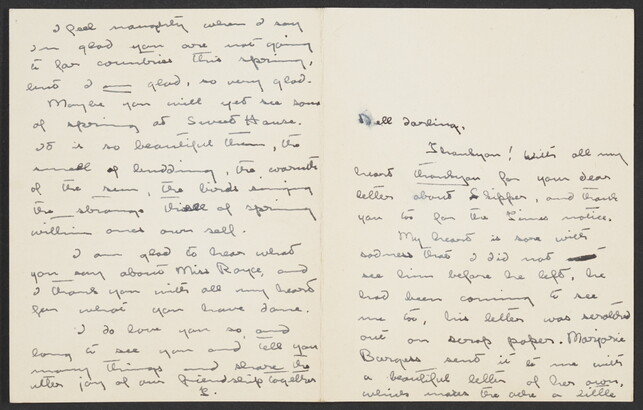 I feel naughty when I say
I'm glad you are not going
to far countries this spring,
but I am glad, so very glad.
Maybe you will yet see some
of spring at Sweet House.
It is so beautiful then, the
smell of budding, the warmth
of the sun, the birds singing
the strange thrill of spring
within ones own self.
I am glad to hear what
you say about Miss Royce, and
I thank you with all my heart
for what you have done.
I do love you so, and
long to see you and tell you
many things and share the
utter joy of our friendship together
Dell darling,
Thankyou! with all my
heart thankyou for your dear
letter about Skipper, and thank
you too for the Times notice.
My heart is sore with
sadness that I did not
see him before he left, he
had been coming to see
me too, his letter was scrabbled
out on scrap paper. Marjorie
Burgess sent it to me with
a beautiful letter of her own,
which makes the ache a little